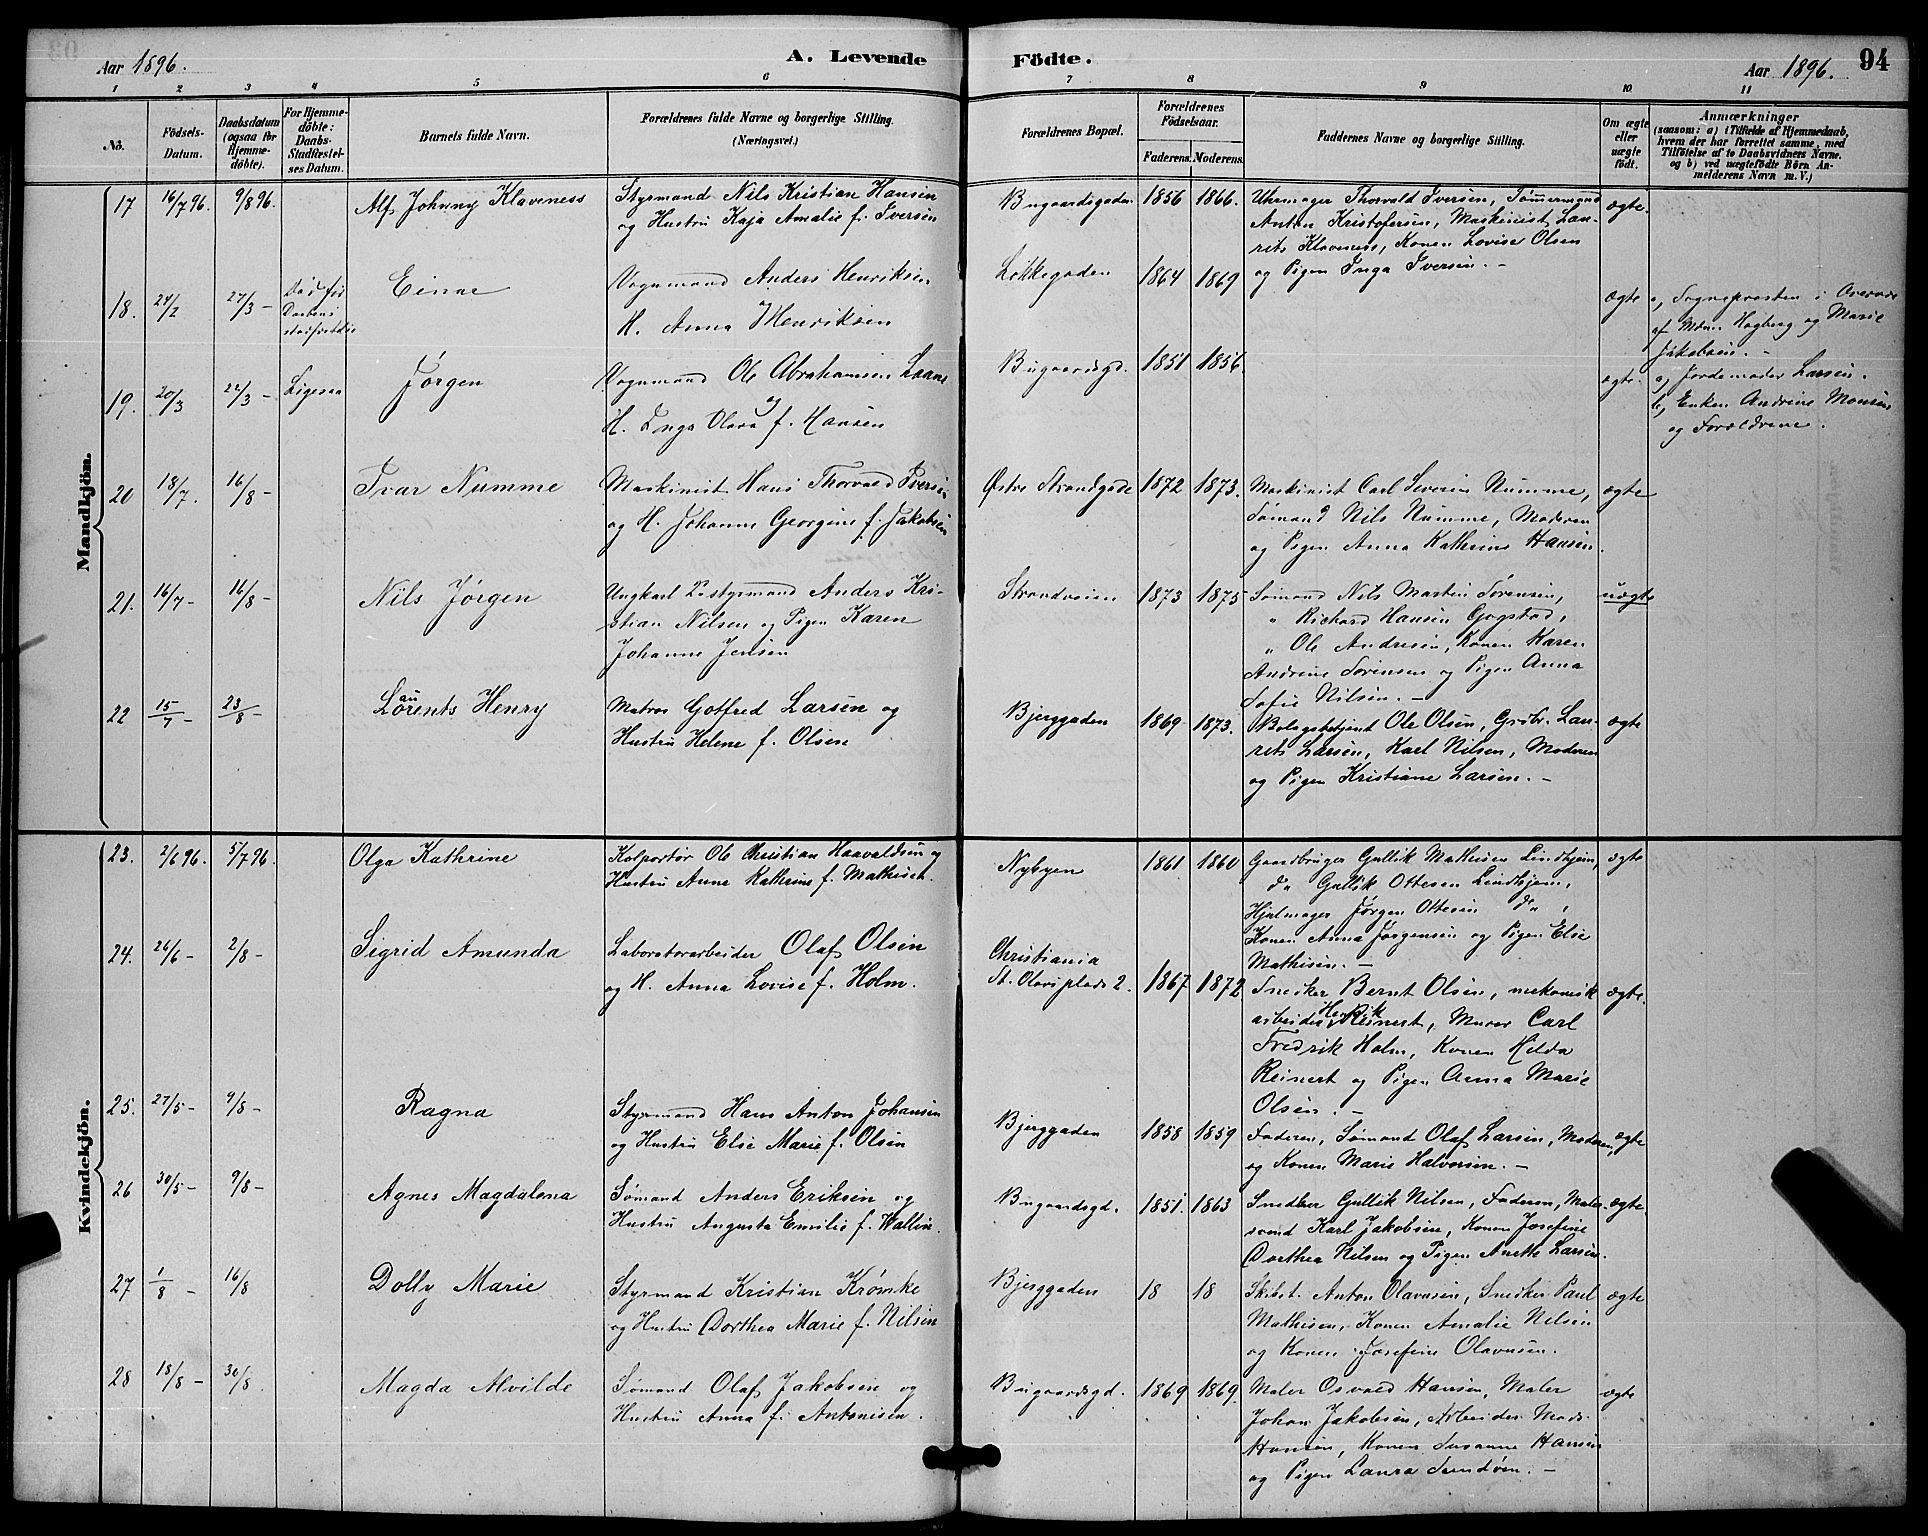 Aar 1896.
A. Levende
Födte.
Aar 1896.
94
1 2 3 4 5 6 7 8 9 10 11
No.
Födsels-
Datum.
Daabsdatum
(ogsaa for
Hjemme-
döbte).
For Hjemme-
döbte:
Daabs-
Stadfæstel-
ses Datum.
Barnets fulde Navn.
Forældrenes fulde Navne og borgerlige Stilling.
(Næringsvei.)
Forældrenes Bopæl.
Forældrenes
Födselsaar.
Faderens. Moderens.
Faddernes Navne og borgerlige Stilling.
Om ægte
eller
uægte
født.
Anmærkninger
(saasom: a) i Tilfælde af Hjemmedaab,
hvem der har forrettet samme, med
Tilföielse af to Daabsvidners Navne.
og b) ved uægtefödte Börn An-
melderens Navn m. V.)
Mandkjön.
17 16/7 96. 9/8 96. Alf Johnny Klaveness
Styrmand Nils Kristian Hansen
og Hustru Kaja Amalie f. Iversen
Bugaardsgaden 1856 1866.
Uhrmager Thorvald Iversen, Tømmermand
Anton Kristofersen, Maskinist Lau-
rits Klaveness, Konen Lovise Olsen
og Pigen Inga Iversen. -
ægte.
18. 24/2 27/3 - Død før
Daabens
stadfæstelse
Einar
Vognmand Anders Henriksen
H. Anna Henriksen
Løkkegaden 1864 1869
ægte
a, Sogneprosten i Overvær
af Mdm Hogberg og Marie
Jakobsen. -
19. 20/3 22/3 - Ligesaa Jørgen
Vognmand Ole Abrahamsen Laane
og
H. Inga Olava f. Hansen
Bugaardsgd. 1851 1856.
ægte.
a, Jordemoder Larsen.
b, Enken Andrine Monsen
og Forældrene.
20 18/7. 16/8 - Ivar Numme
Maskinist Hans Thorvald Iversen
og H. Johanne Georgine f. Jakobsen
Østre Strandgade 1872 1873.
Maskinist Carl Severin Numme,
Sømand Nils Numme, Moderen
og Pigen Anna Kathrine Hansen.
ægte
21. 16/7 - 16/8 - Nils Jørgen
Ungkarl Styrmand Anders Kri-
stian Nilsen og Pigen Karen
Johanne Jensen
Strandveien 1873 1875
Sømand Nils Martin Sørensen,
" Richard Hansen Gogstad,
" Ole Andresen, Konen Karen
Andrine Sørensen og Pigen Anna
Sofie Nilsen. -
uægte
22 15/7 - 23/8 - Laurents Henry
Matros Gotfred Larsen og
Hustru Helene f. Olsen
Bjerggaden 1869 1873.
Bolagsbetjent Ole Olsen, Grøbr. Lau-
rits Larsen, Karl Nilsen, Moderen
og Pigen Kristiane Larsen. -
ægte
Kvindekjön.
23. 2/6 96. 5/7 96. Olga Kathrine
Kolportør Ole Christian Haavaldsen og
Hustru Anne Kathrine f. Mathisen.
Nybyen 1861. 1860
Gaardbruger Gullik Mathisen Lindhjem,
do Gullik Ottesen Lindhjem,
Hjulmager Jørgen Ottesen do,
Konen Anna Jørgensen og Pigen Else
Mathisen. -
ægte
24. 26/6 - 2/8 - Sigrid Amunda
Laboratorarbeider Olaf Olsen
og H. Anna Lovise f. Holm.
Christiania
St. Olavsplads 2. 1867 1872
Snedker Bernt Olsen, mekanisk
arbeider Henrik Reinert, Murer Carl
Fredrik Holm, Konen Hilda
Reinert og Pigen Anna Marie
Olsen. -
ægte.
25. 27/5 - 9/8 - Ragna
Styrmand Hans Anton Johansen
og Hustru Else Marie f. Olsen
Bjerggaden 1858 1859
Faderen, Sømand Olaf Larsen, Moderen,
og Konen Marie Halvorsen. -
ægte
26 30/5 - 9/8 - Agnes Magdalena
Sømand Anders Eriksen og
Hustru Augusta Emilie f. Wallin.
Bugaardsgd. 1851. 1863
Snedker Gullik Nilsen, Faderen, Maler-
svend Karl Jakobsen, Konen Josefine
Dorthea Nilsen og Pigen Anette Larsen.
ægte.
27 1/8 - 16/8 Dolly Marie
Styrmand Kristian Krømke
og Hustru Dorthea Marie f. Nilsen
Bjerggaden 18 18
Skibst. Anton Olavesen, Snedker Paul
Mathisen, Konen Amalie Nilsen
og Konen Josefine Olavesen.
ægte
28 13/8 - 30/8. Magda Alvilde
Sømand Olaf Jakobsen og
Hustru Anna f. Antonisen.
Bugaardsgd. 1869 1869.
Maler Osvald Hansen, Maler
Johan Jakobsen, Arbeider Mads
Hansen, Konen Susanne Hansen
og Pigen Laura Sundøen. -
ægte